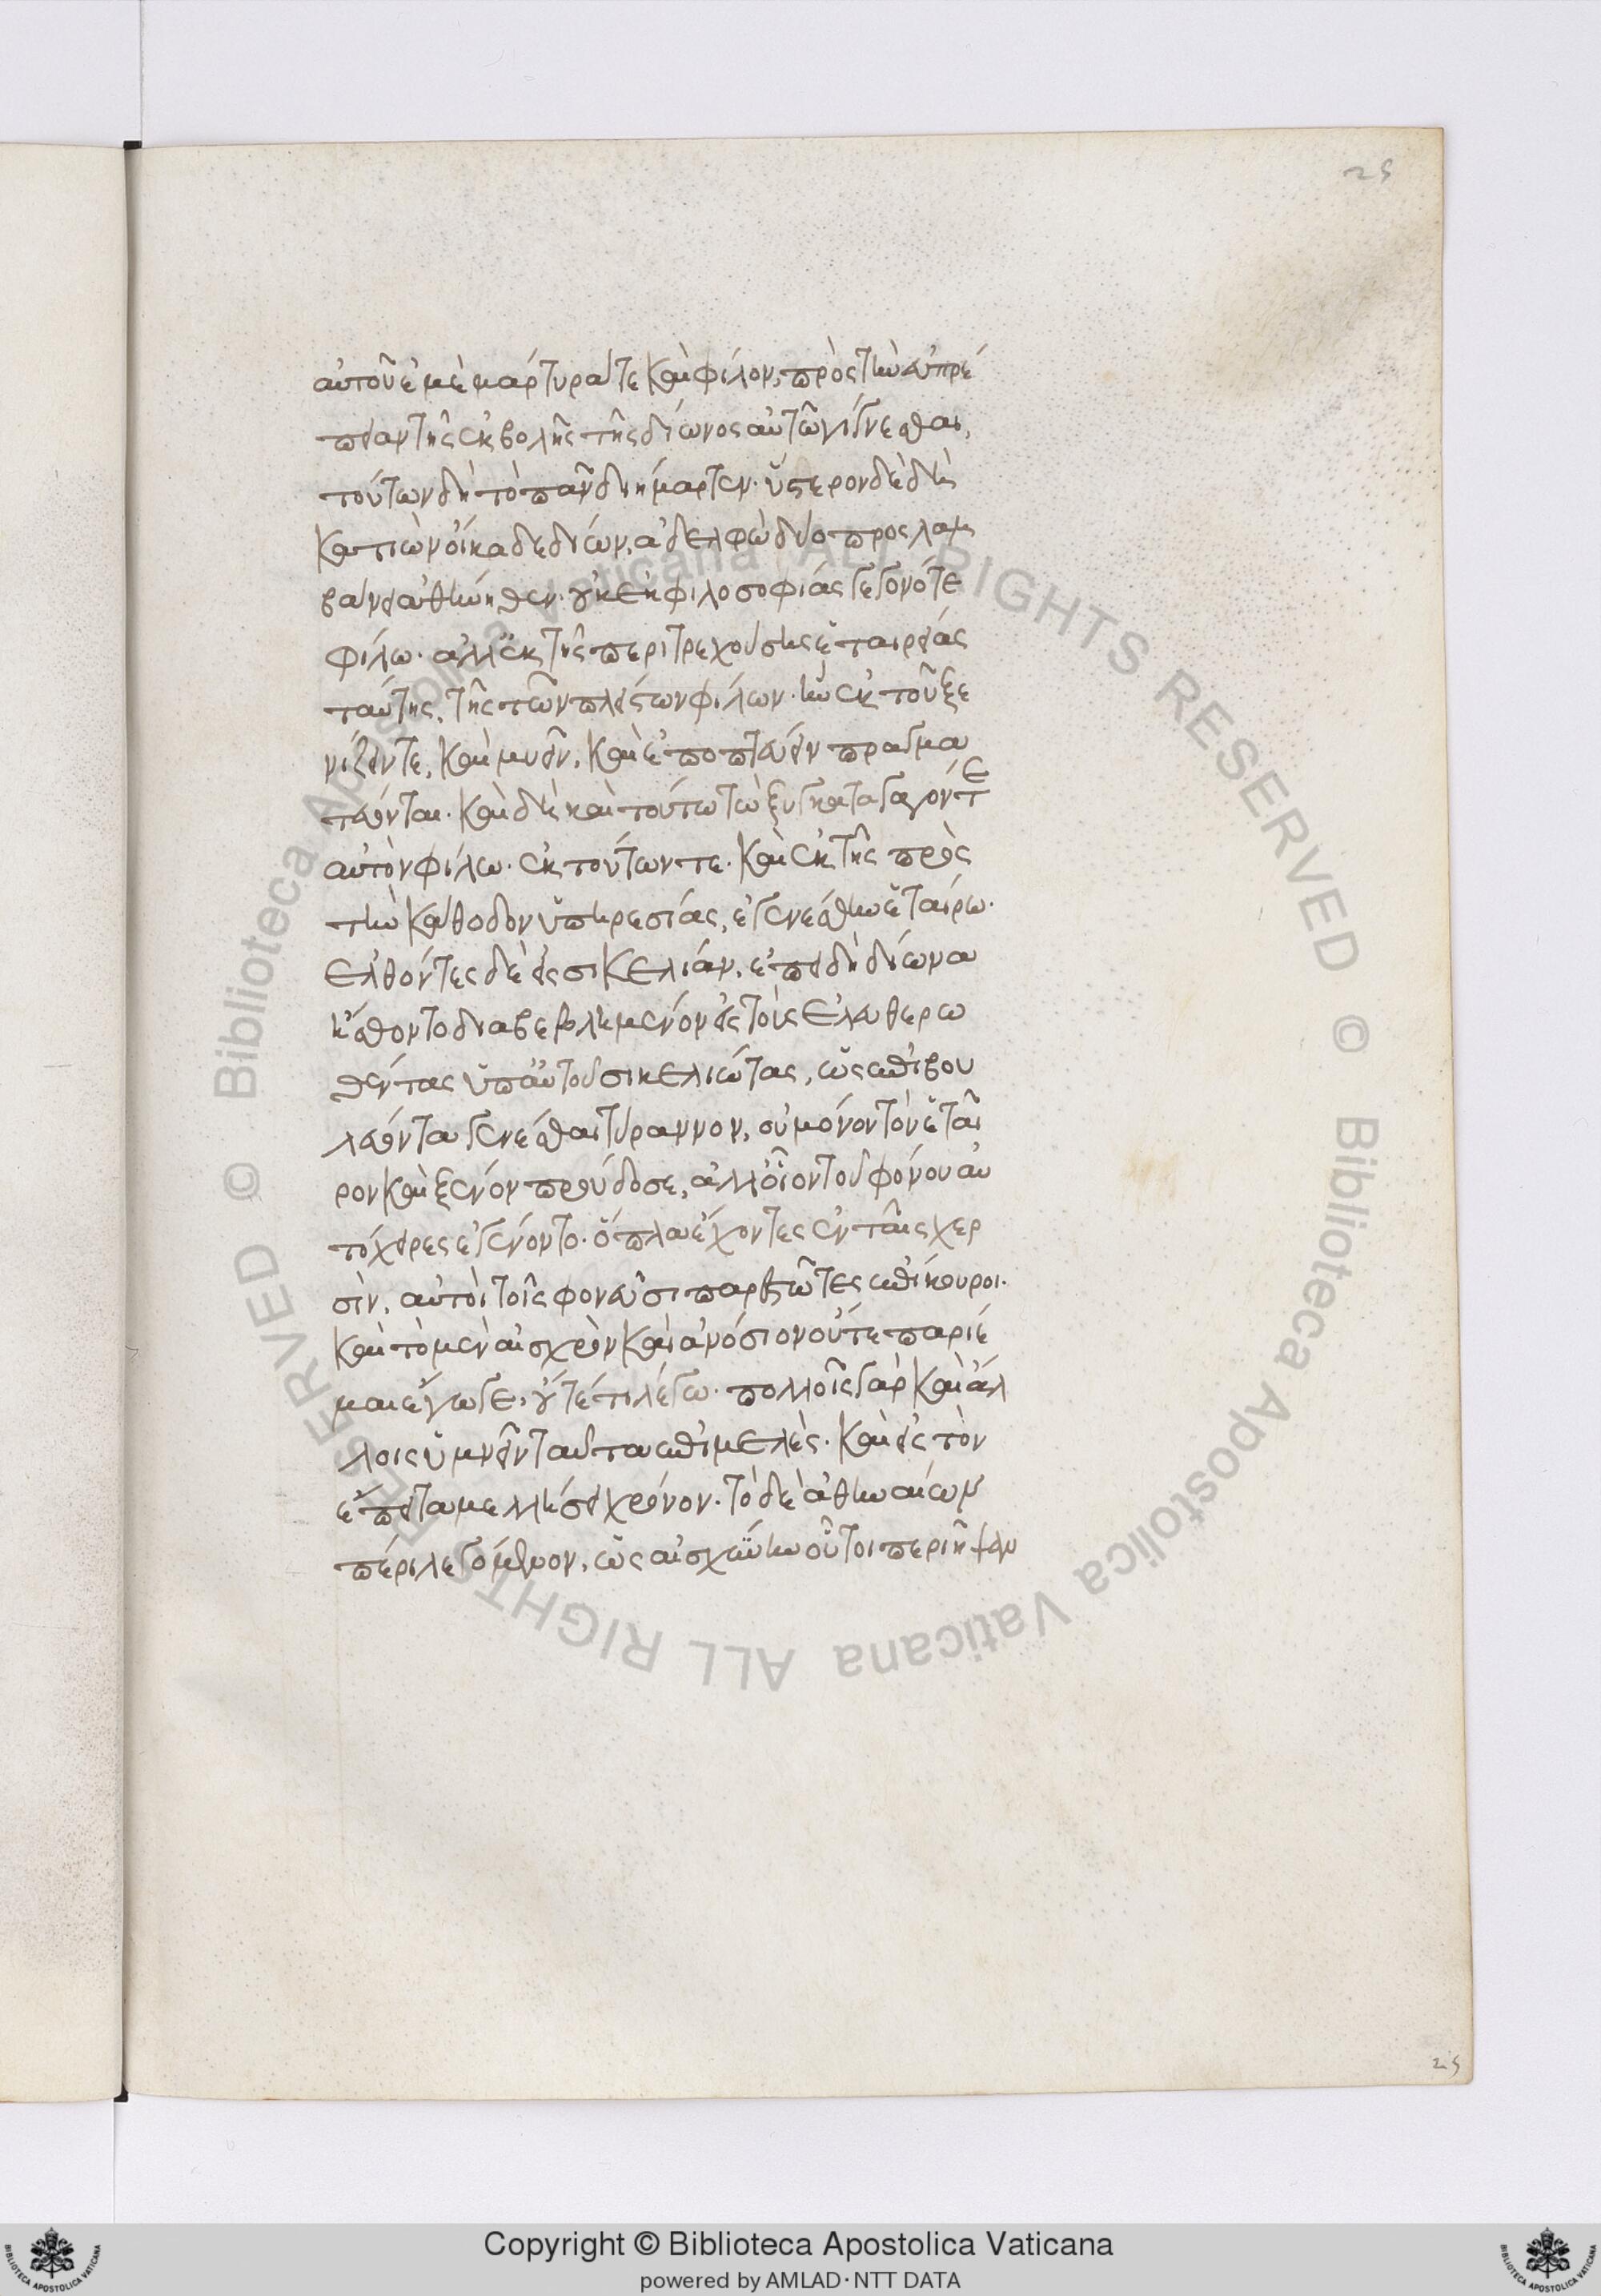 25
αὐτοῦ ἐμὲ μάρτυρά τε καὶ φίλον, πρὸς τὴν εὐπρέ
πειαν τῆς ἐκβολῆς τῆς δίωνος αὐτῶ γίγνεσθαι,
τούτων δὴ τὸ πᾶν διήμαρτεν· ὕστερον δὲ δὴ
κατιὼν οἴκαδε δίων, ἀδελφὼ δύο προσλαμ
βάνει ἀθήνηθεν· οὐκ ἐκ φιλοσοφίας γεγονότε
φίλω· ἀλλ' ἐκ τῆς περιτρεχούσης ἑταιρείας
ταύτης, τῆς τῶν πλείστων φίλων· ἣν ἐκ τοῦ ξε
νίζειν τε, καὶ μυεῖν, καὶ ἐποπτεύειν πραγμα
τεύονται· καὶ δὴ καὶ τούτω τὼ ξυγκαταγαγόντε
αὐτὸν φίλω· ἐκ τούτων τε· καὶ ἐκ τῆς πρὸς
τὴν κάθοδον ὑπηρεσίας, ἐγενέσθην ἑταίρω·
ἐλθόντες δὲ εἰς σικελίαν, ἐπειδὴ δίωνα
ἤσθοντο διαβεβλημένον εἰς τοὺς ἐλευθερω
θέντας ὑπ' αὐτοῦ σικελιώτας, ὡς ἐπιβου
λεύοντα γενέσθαι τύραννον, οὐ μόνον τὸν ἑταῖ
ρον καὶ ξένον προύδοσε, ἀλλ' οἷον τοῦ φόνου αὐ
τόχειρες ἐγένοντο· ὅπλα ἔχοντες ἐν ταῖς χερ
σὶν, αὐτοὶ τοῖς φονεῦσι παρεστῶτες ἐπίκουροι·
καὶ τὸ μὲν αἰσχρὸν καὶ ἀνόσιον οὔτε παρίε
μαι ἔγωγε· οὔτέ τι λέγω· πολλοῖς γὰρ καὶ ἄλ
λοις ὑμνεῖν ταῦτα ἐπιμελὲς· καὶ εἰς τὸν
ἔπειτα μελλήσει χρόνον· τὸ δὲ ἀθηναίων
πέρι λεγόμενον, ὡς αἰσχύνην οὗτοι περιῆψαν
25
Copyright © Biblioteca Apostolica Vaticana
powered by AMLAD·NTT DATA